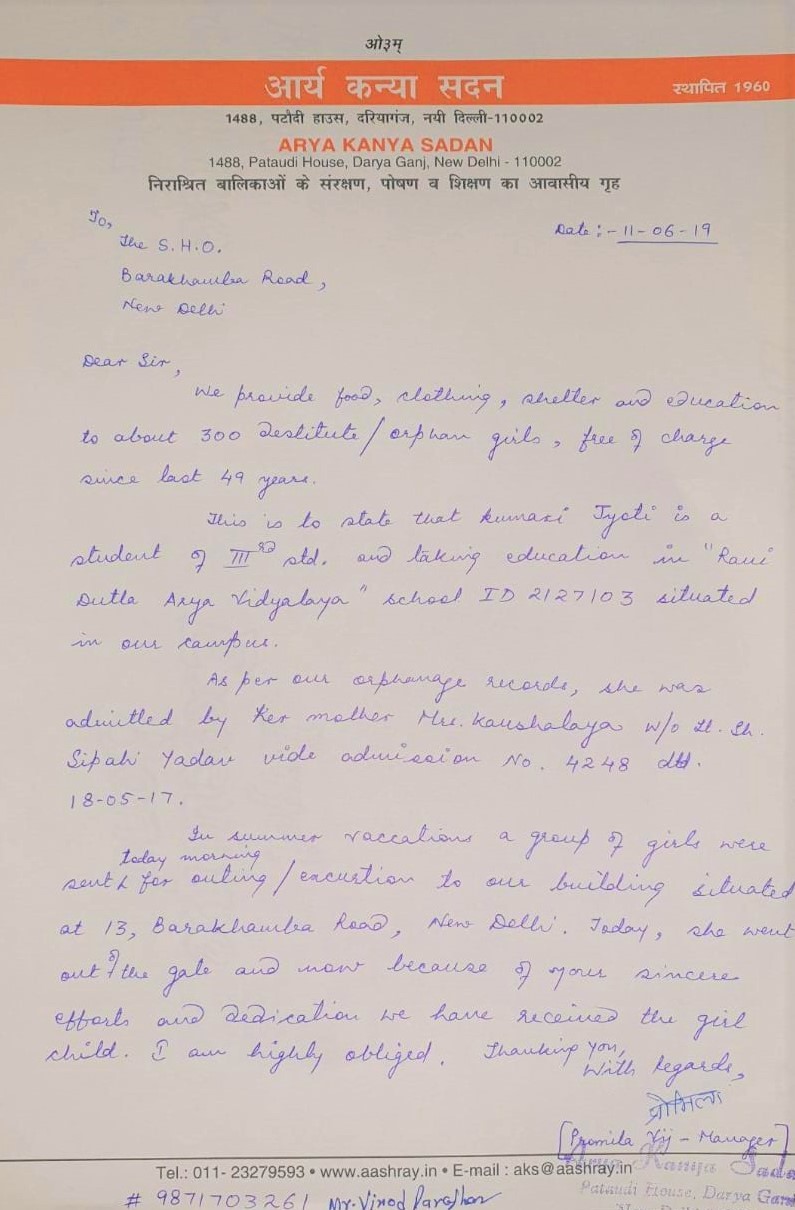 ओ३म्
आर्य कन्या सदन
स्थापित 1960
1488, पटौदी हाउस, दरियागंज, नयी दिल्ली-110002
ARYA KANYA SADAN
1488, Pataudi House, Darya Ganj, New Delhi - 110002
निराश्रित बालिकाओं के संरक्षण, पोषण व शिक्षण का आवासीय गृह
To,
Date :- 11-06-19
The S.H.O.
Barakhamba Road,
New Delhi
Dear Sir,
We provide food, clothing, shelter and education
to about 300 destitute/orphan girls, free of charge
since last 49 years.
This is to state that kumari Jyoti is a
student of IIIrd std. and taking education in "Rani
Dutta Arya Vidyalaya" school ID 2127103 situated
in our campus.
As per our orphanage records, she was
admitted by her mother Mrs. Kaushalaya w/o Lt. Sh.
Sipahi Yadav vide admission No. 4248 dtd.
18-05-17.
In summer vaccations a group of girls were
today morning
sent for outing/excurtion to our building situated
at 13, Barakhamba Road, New Delhi. Today, she went
out of the gate and now because of your sincere
efforts and dedication we have received the girl
child. I am highly obliged. Thanking you,
With Regards,
प्रोमिला
[Promila Vij - Manager]
Arya Kanya Sadan
Tel.: 011- 23279593 • www.aashray.in • E-mail : aks@aashray.in
Pataudi House, Darya Ganj
# 9871703261 Mr. Vinod Parashar
New Delhi